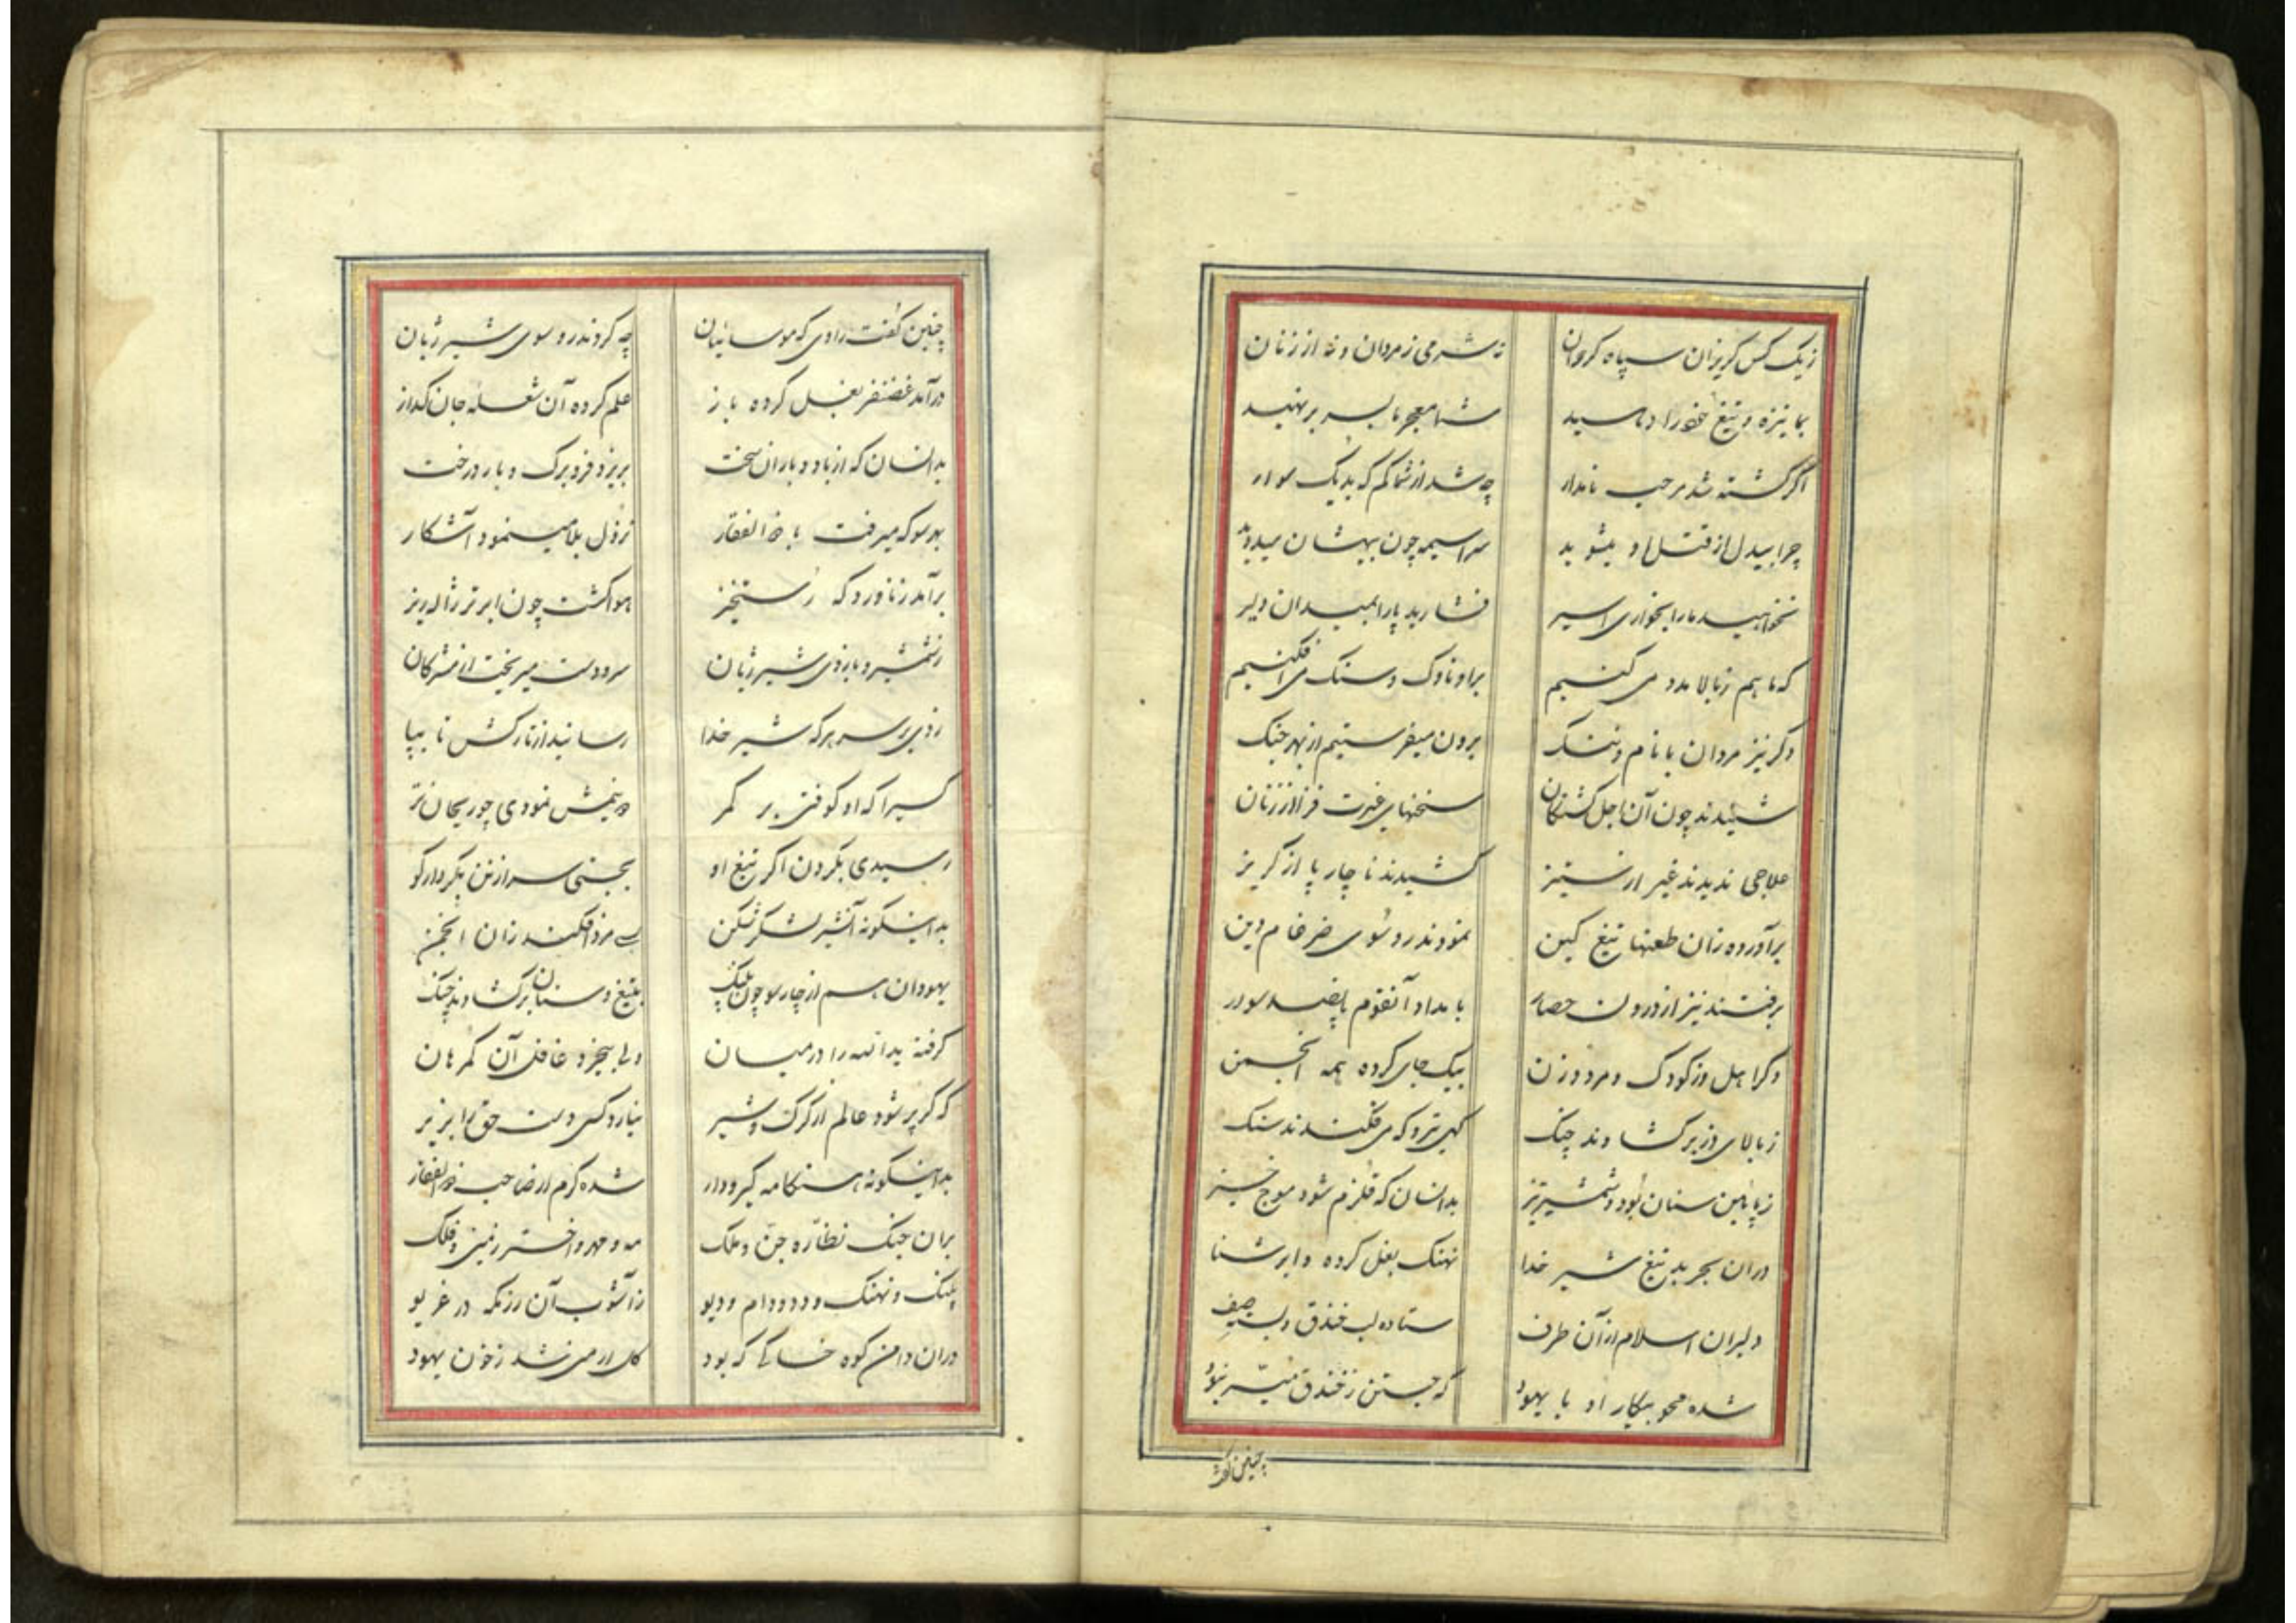 زیک کس کریزان سپاه کران نه شرمی ز مردان و نه از زنان
بما نیزه و تیغ خود را دهید شما معجر ما بسر بر نهید
اگر کشته شد مرحب نامدار چه شد از شما کم که بد یک سوار
چرا بیدل از قتل او میشوید سراسیمه چون بیهشان میدوید
نخواهید ما را بخواری اسیر فشارید پا را بمیدان دلیر
که ما هم ز بالا مدد می کنیم برو ناوک و سنک می افکنیم
دکر نیز مردان با نام و ننک برون میفرستیم از بهر جنک
شنیدند چون آن اجل کشتکان سخنهای غیرت فزا از زنان
علاجی ندیدند غیر از ستیز کشیدند ناچار پا از کریز
برآورده زان طعنها تیغ کین نمودند رو سوی ضرغام دین
برفتند نیز از درون حصار بامداد آنقوم پانصد سوار
دکر اهل دز کودک و مرد و زن بیک جای کرده همه انجمن
ز بالای دز برکشادند چنک کهی تیر و که می فکندند سنک
ز پائین سنان بود و شمشیر تیز بدانسان که قلزم شود موج خیز
دران بحر بد تیغ شیر خدا نهنک بغل کرده و ابر شنا
دلیران اسلام از آن طرف ستاده لب خندق و بسته صف
شده محو پیکار او با یهود که جستن ز خندق میسّر نبود
چنین کفت
چنین کفت راوی که موسائیان چه کردند رو سوی شیر ژیان
درآمد غضنفر بغل کرده باز علم کرده آن شعله جان کداز
بدانسان که از باد و باران سخت بریزد فرو برک و بار درخت
بهر سو که میرفت با ذوالفقار نزول بلا مینمود آشکار
برآمد ز ناوردکه رستخیز هوا کشت چون ابر تر ژاله ریز
ز شمشیر و بازوی شیر ژیان سر و دست میریخت از مشرکان
زدی بر سر هر که شیر خدا رسانید از تارکش تا بپا
کسیرا که او کوفتی بر کمر دو نیمش نمودی چو ریحان تر
رسیدی بکردن اکر تیغ او بجستی سر از تن بکردار کو
بداینکونه آنشیر لشکر شکن بسی مرد افکند زان انجمن
یهودان هم از چار سو چون پلنک بتیغ و سنان برکشادند چنک
کرفته ید الله را در میان ولی بیخرد غافل آن کمرهان
که کر پر شود عالم از کرک و شیر نیارد کسی دست حق را بزیر
بداینکونه هنکامه کیرودار شده کرم از صاحب ذوالفقار
بران جنک نظّاره جنّ و ملک مه و مهر و اختر زمین و فلک
پلنک و نهنک و دد و دام و دیو ز آشوب آن رزمکه در غریو
دران دامن کوه خاکی که بود کل ارمنی شد ز خون یهود